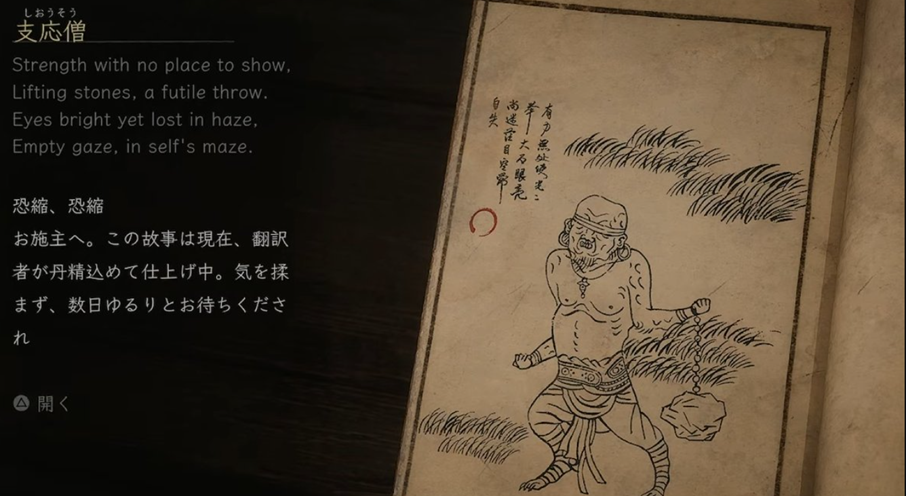 しおうそう
支応僧
Strength with no place to show,
Lifting stones, a futile throw.
Eyes bright yet lost in haze,
Empty gaze, in self's maze.
恐縮、恐縮
お施主へ。この故事は現在、翻訳
者が丹精込めて仕上げ中。気を揉
まず、数日ゆるりとお待ちくださ
れ
開く
有力無处使
举大石眼亮
尚迷茫目空
自失